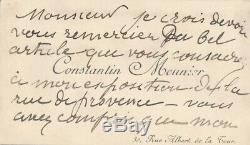 Monsieur je crois devoir
vous remercier du bel
article que vous consacrez
Constantin Meunier
à mon exposition de la
rue de provence – vous
avez compris que mon
Rue Albert de la Tour